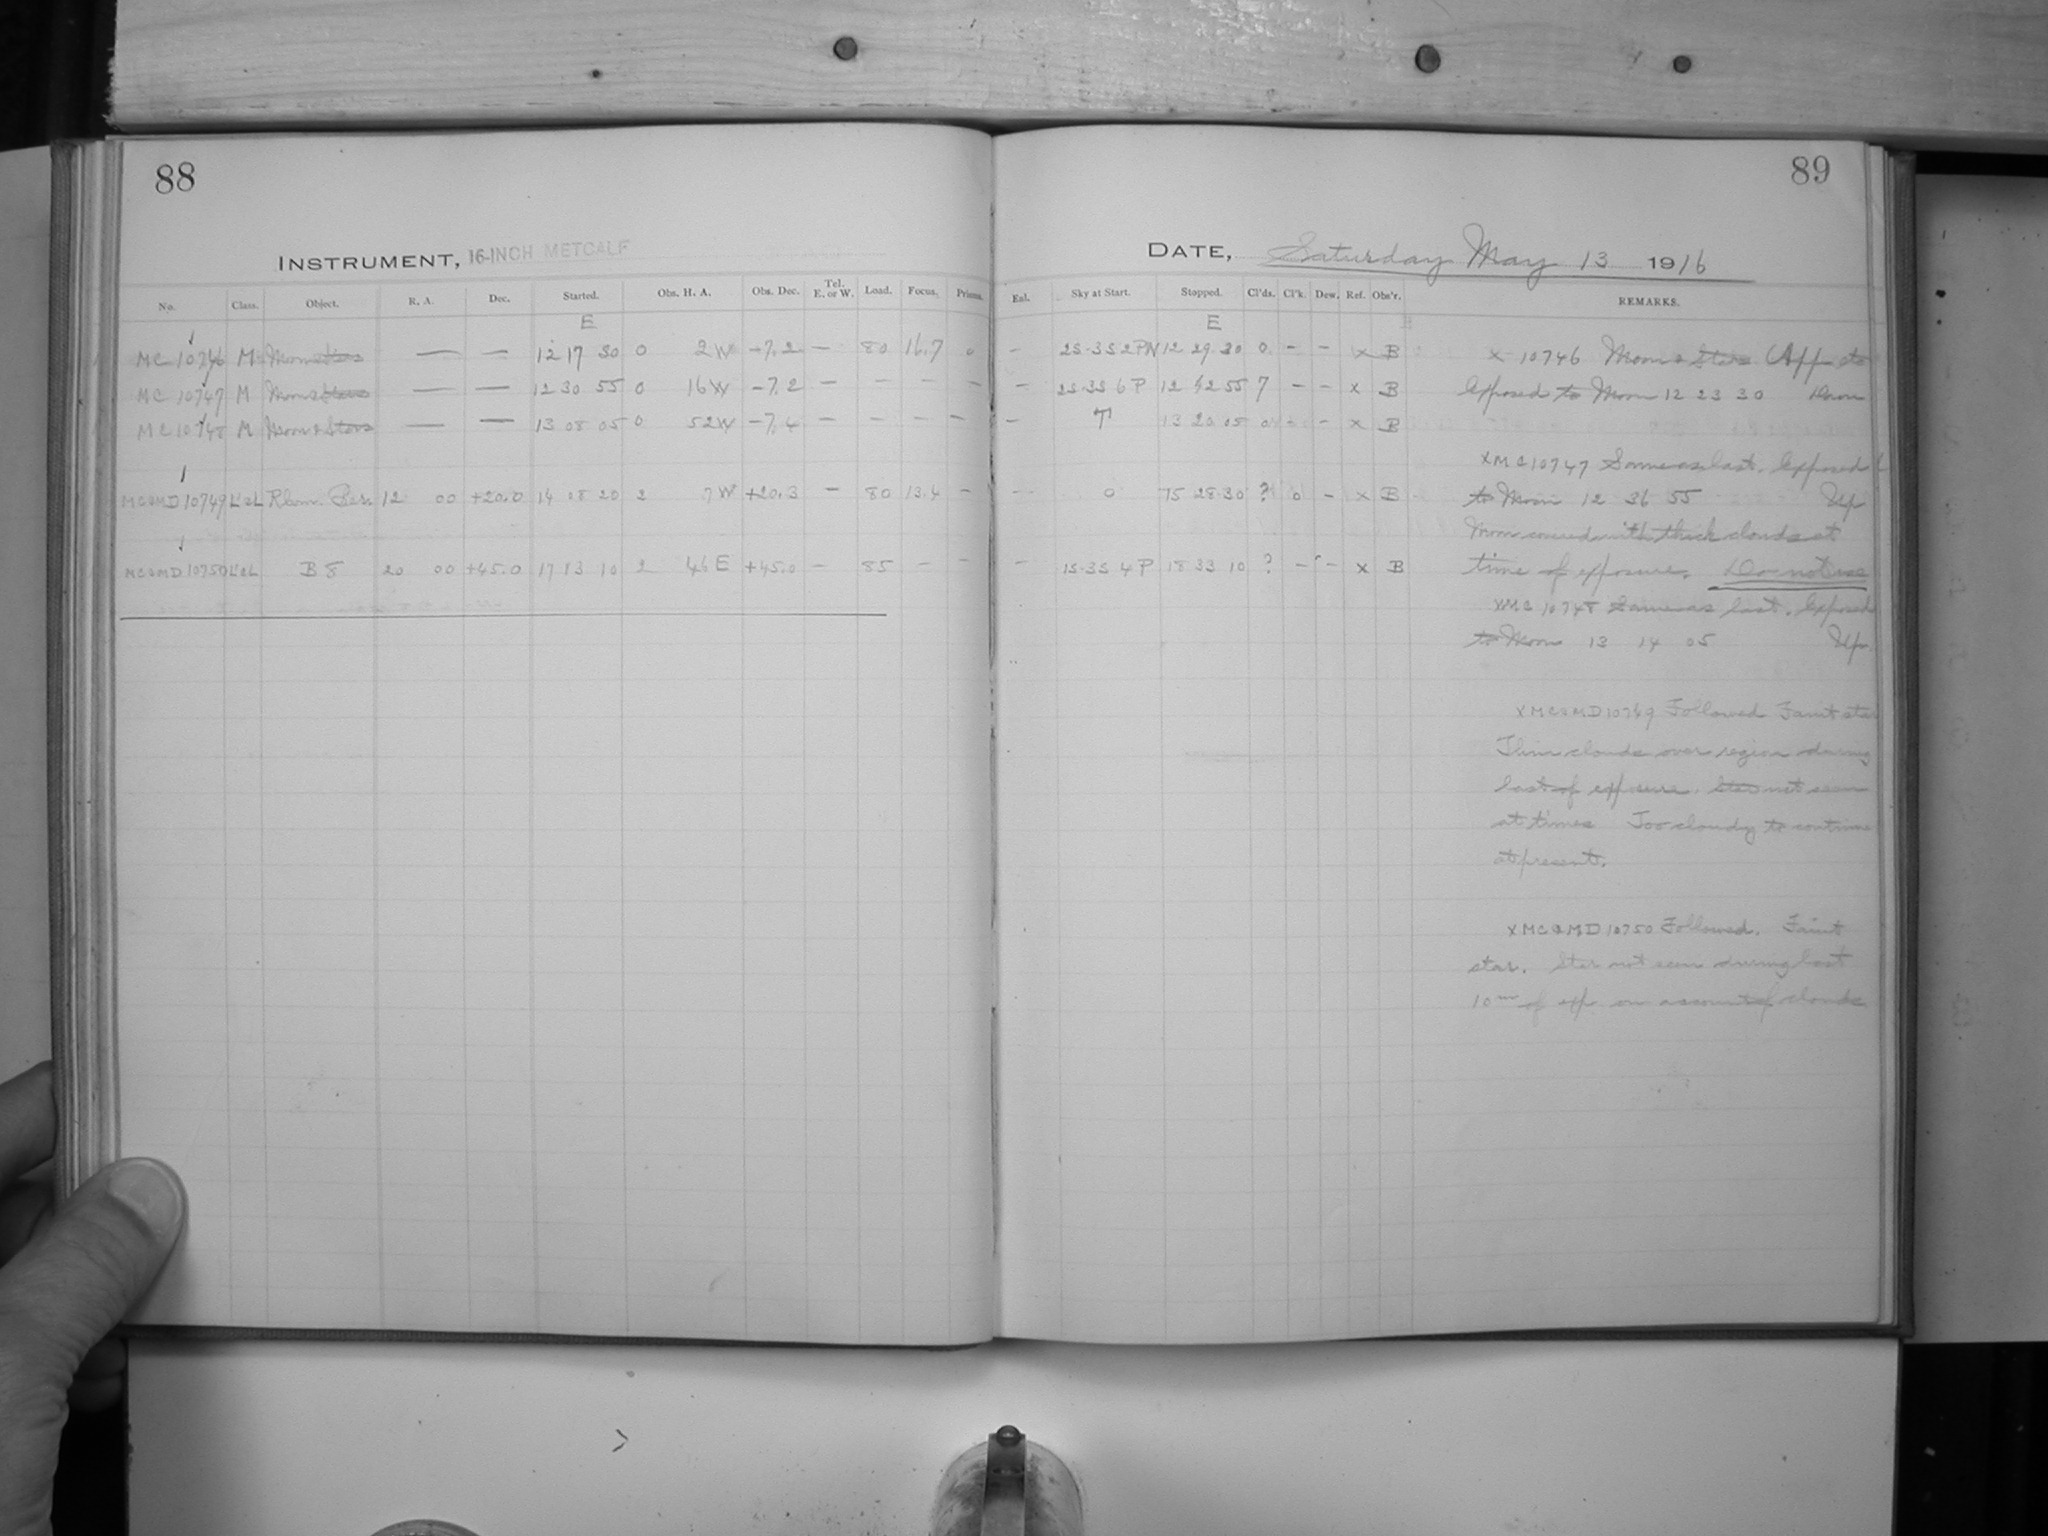 88
INSTRUMENT, 16-INCH METCALF
No. Class. Object. R. A. Dec. Started. Obs. H. A. Obs. Dec. Tel. E. or W. Load. Focus. Prisms.
E
MC 10746 M Moon & Stars — — 12 17 30 0 2 W -7.2 — 80 16.7 0
MC 10747 M Moon & Stars — — 12 30 55 0 16 W -7.2 — — — —
MC 10748 M Moon & Stars — — 13 08 05 0 52 W -7.4 — — — —
MC & MD 10749 L&L 12 00 +20.0 14 08 20 2 7 W +20.3 — 80 13.4 —
MC & MD 10750 L&L B 8 20 00 +45.0 17 13 10 2 46 E +45.0 — 85 — —
89
DATE, Saturday May 13 1916
Eal. Sky at Start. Stopped. Cl'ds. Cl'k. Dew. Ref. Obs'r. REMARKS.
E
— 2S-3S 2 PW 12 29 30 0 – – x B
— 2S-3S 6 P 12 42 55 7 – – x B
— T 13 20 05 – x B
— 0 15 28 30 ? 0 – x B
— 1S-3S 4 P 18 33 10 ? – – x B
x 10746 Moon & Stars
Exposed to Moon 12 23 30 Down
x MC 10747 Same as last. Exposed
to Moon 12 36 55 Up
Moon covered with thick clouds at
time of exposure. Do not use
x MC 10748 Same as last. Exposed
to Moon 13 14 05 Up
x MC & MD 10749 Followed Faint star
Thin clouds over region during
last of exposure. Star not seen
at times Too cloudy to continue
at present.
x MC & MD 10750 Followed. Faint
star. Star not seen during last
10 m of exp on account of clouds